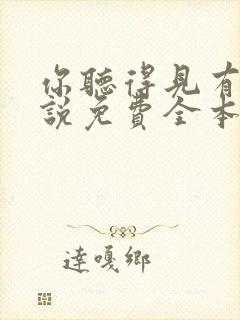 你聽得見有
說免費全本
達嘎鄉